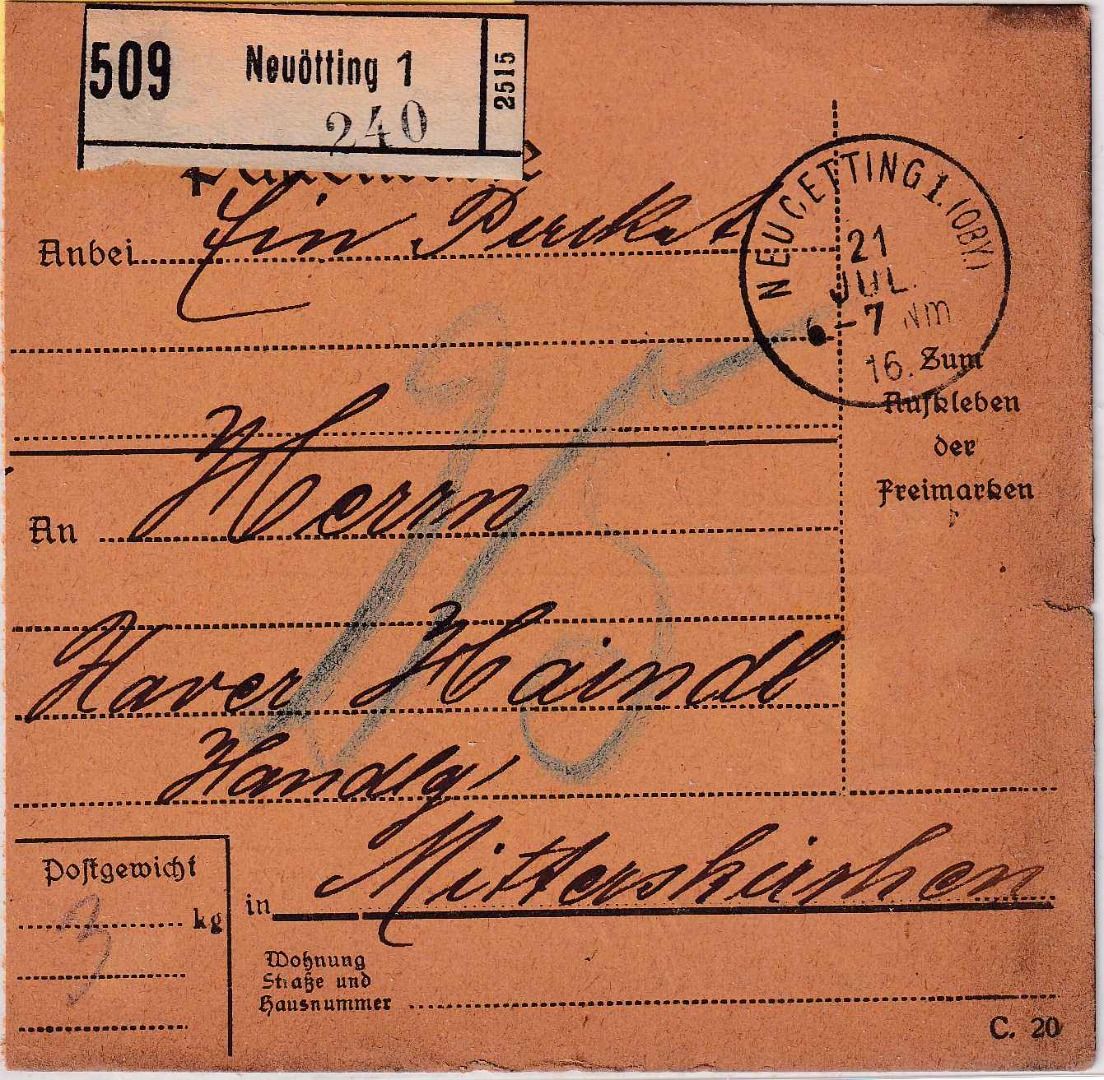 509 Neuötting 1 2515
240
Anbei Ein Packet
NEUOETTING 1. (OBY)
21
JUL.
6-7 Nm
16.
Zum
Aufkleben
der
Freimarken
An Herrn
Xaver Haindl
Handlg.
15
Postgewicht
3 kg
in Mitterskirchen
Wohnung
Straße und
Hausnummer
C. 20